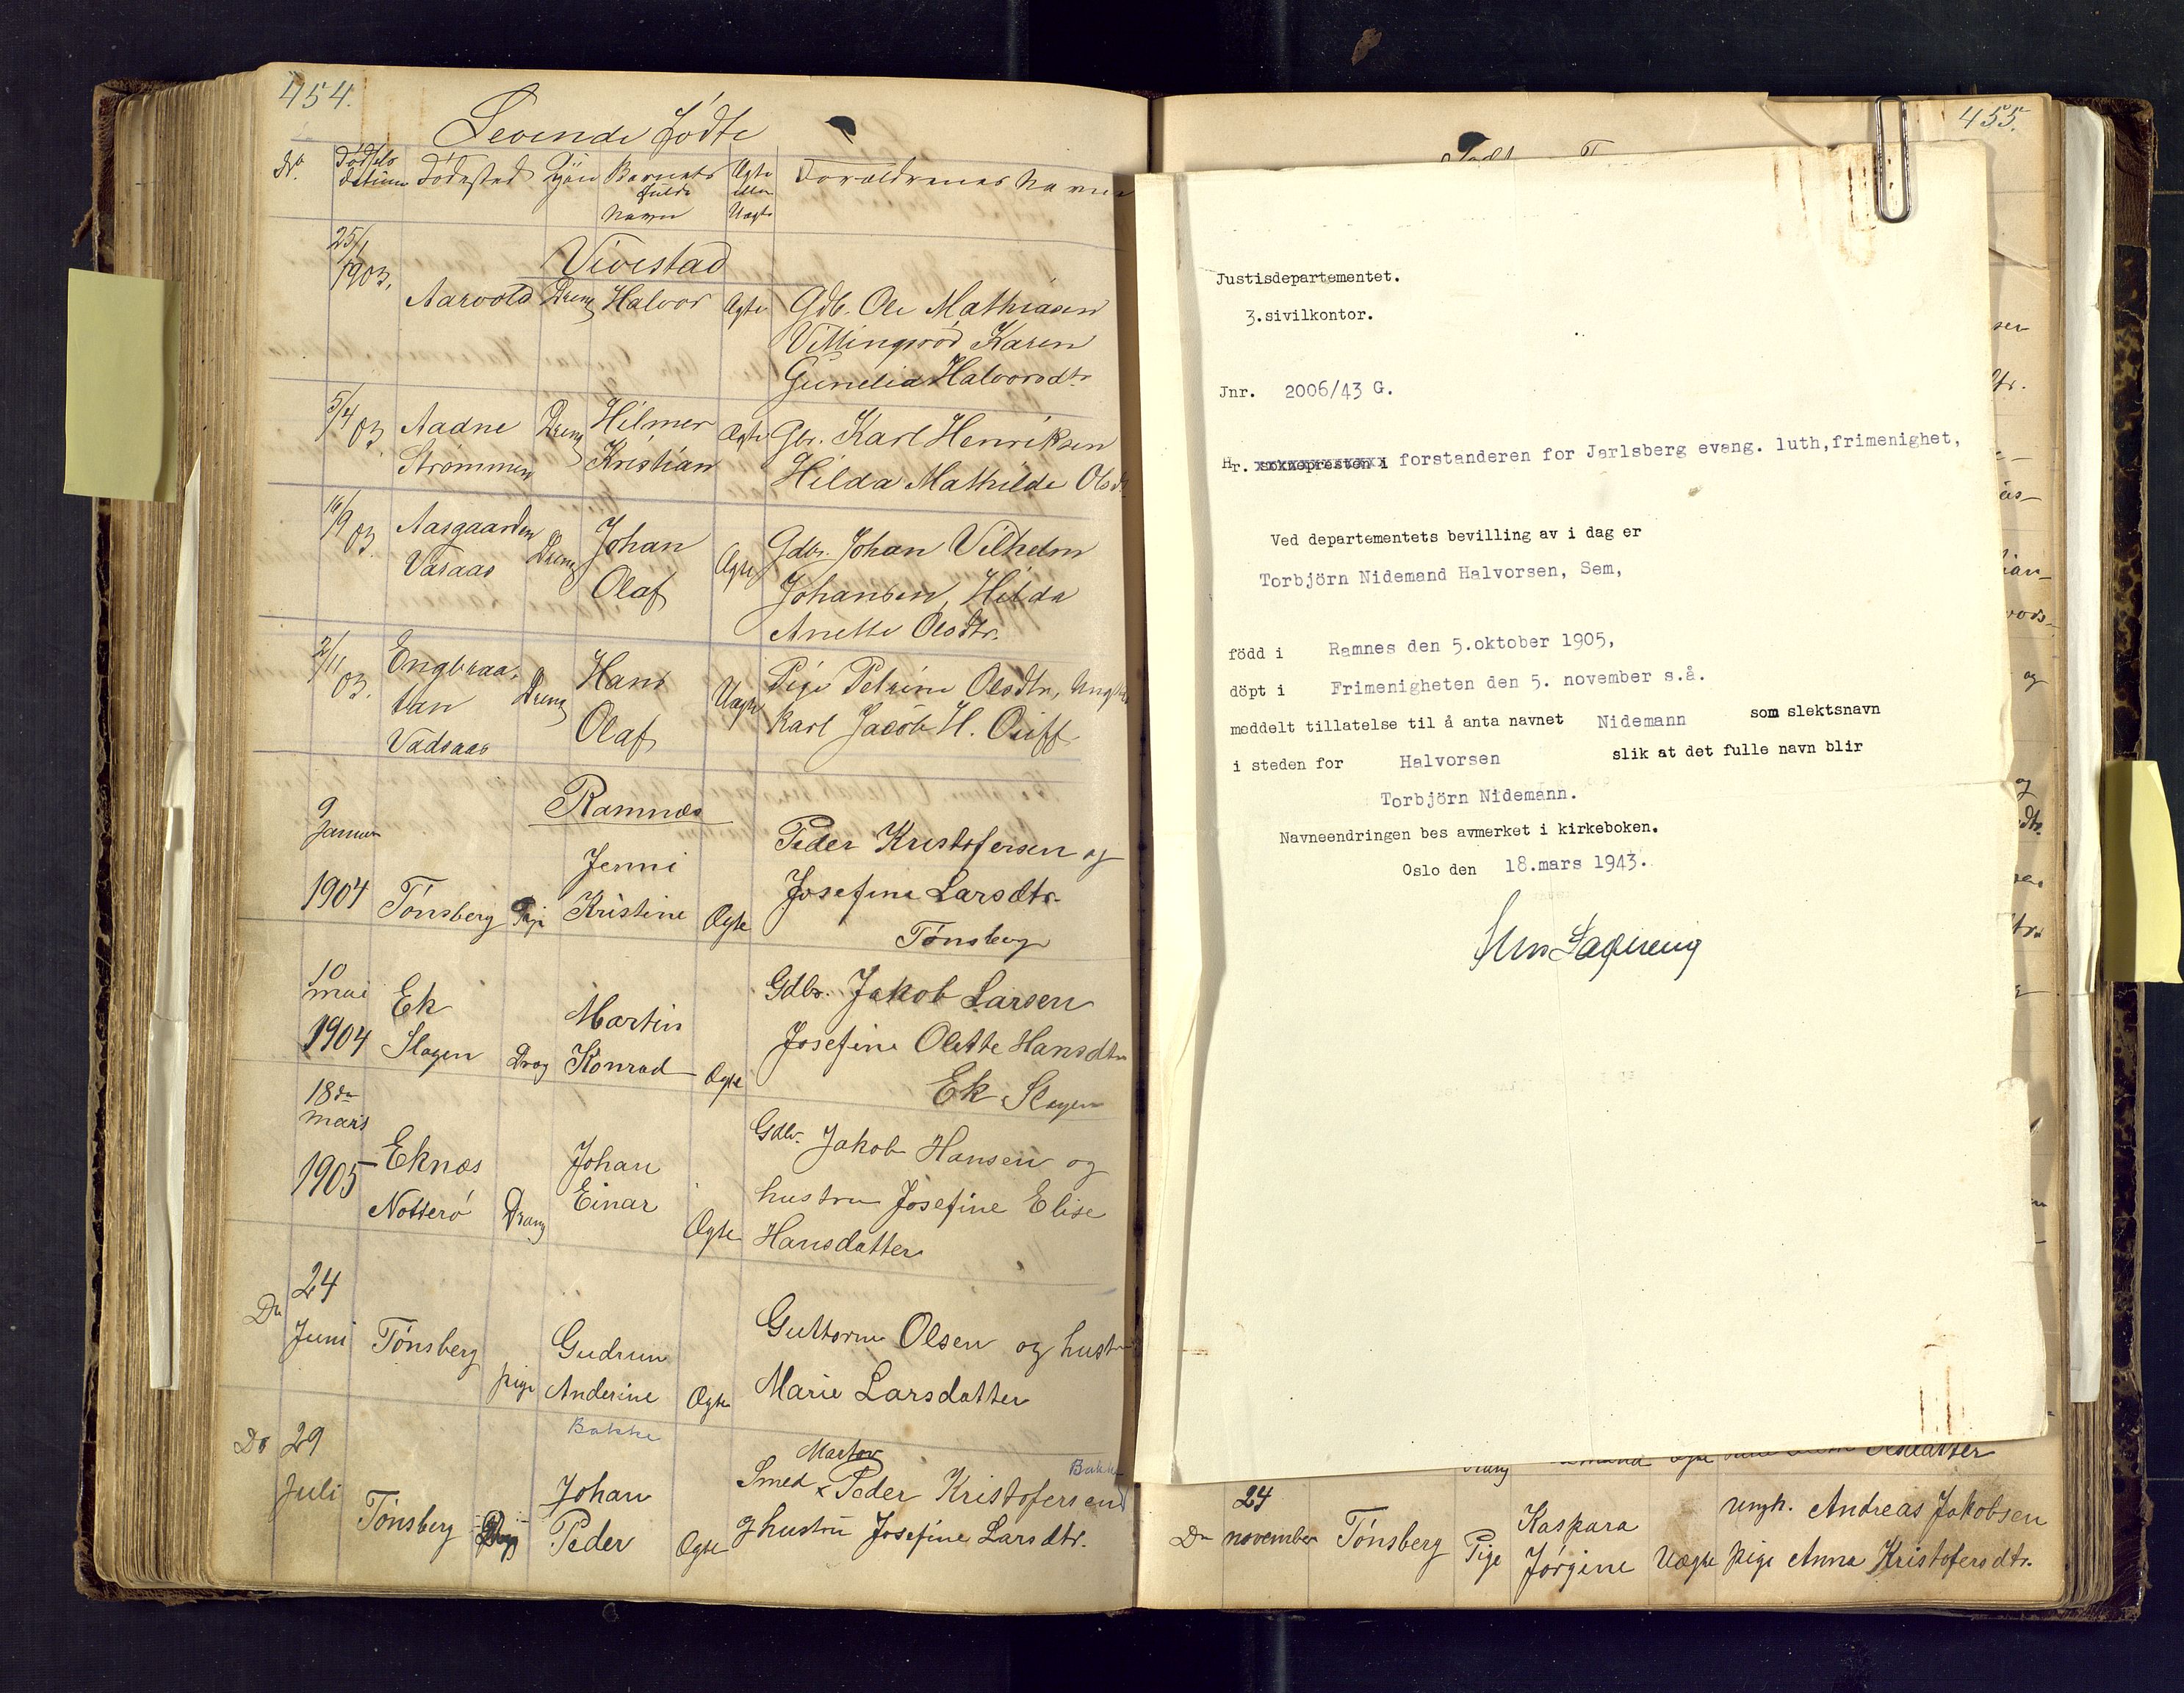 454.
Levende fødte
No.
Fødsels datum
Fødested
Kjøn
Barnets fulde Navn
Ægte eller Uægte
Forældrenes Navne
Vivestad
25/1 1903.
Aarvold Dreng Halvor Ægte Gdb. Ole Mathiasen
Karen
Gunelia Halvorsdtr
5/4 03. Aadne Dreng Hilmer Ægte Gbr. Karl Henriksen
Strømmen Kristian Hilda Mathilde Olsdtr
16/9 03. Aasgaarden Dreng Johan Ægte Gdbr. Johan Vilhelm
Vasaas Olaf Johansen, Hilda
Anette Olsdtr.
2/11 03. Engbraa- Dreng Hans Uægte Pige Petrine Olsdtr, Ungkar
tan Olaf Karl Jacob H.
Vadsaas
Ramnæs
9 Januar Jenni Peder Kristofersen og
1904 Tønsberg Pige Kristine Ægte Josefine Larsdtr.
Tønsberg
10 mai Ek Martin Gdbr. Jakob Larsen
1904 Slagen Drng Konrad Ægte Josefine Olette Hansdtr
Ek Slagen
18de mars Gdbr. Jakob Hansen og
1905 Eknæs Johan hustru Josefine Elise
Nøtterø Dreng Einar Ægte Hansdatter
Do 24
Juni Tønsberg Gudrun Guttorm Olsen og hustru
pige Anderine Ægte Marie Larsdatter
Bakke
Do 29
Juli Johan Smed x Peder Kristofersen Bakke
Tønsberg Peder Ægte og hustru Josefine Larsdtr.
455.
Justisdepartementet.
3.sivilkontor.
Jnr. 2006/43 G.
Hr. soknepresten i forstanderen for Jarlsberg evang. luth,frimenighet,
Ved departementets bevilling av i dag er
Torbjörn Nidemand Halvorsen, Sem,
född i Ramnes den 5.oktober 1905,
döpt i Frimenigheten den 5. november s.å.
meddelt tillatelse til å anta navnet Nidemann som slektsnavn
i steden for Halvorsen slik at det fulle navn blir
Torbjörn Nidemann.
Navneendringen bes avmerket i kirkeboken.
Oslo den 18.mars 1943.
Olsdatter
24 Kaspara Ungk. Andreas Jakobsen
Do november Tønsberg Pige Jørgine Uægte pige Anna Kristofersdtr.